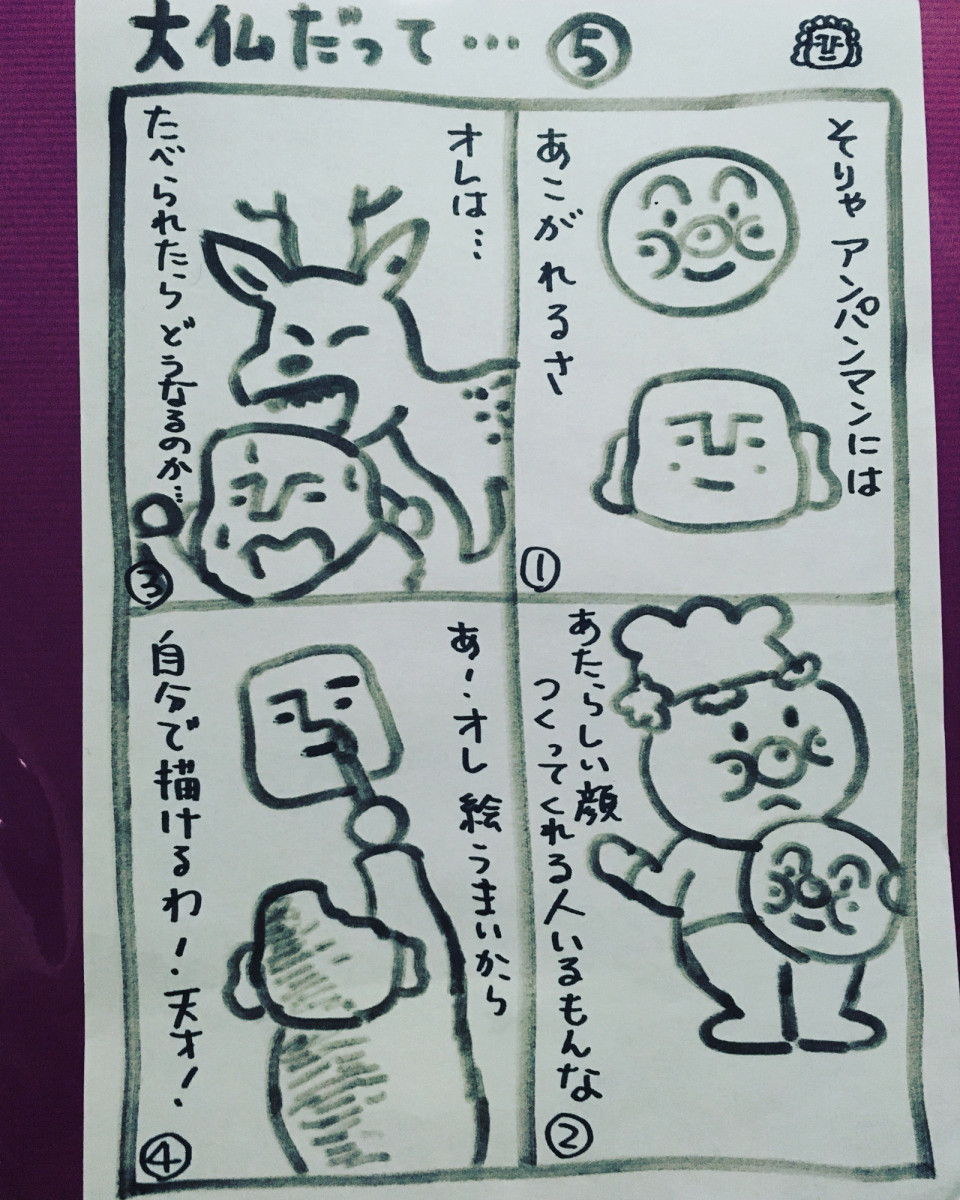 大仏だって…⑤
そりゃアンパンマンには
あこがれるさ
①
あたらしい顔
つくってくれる人いるもんな
②
オレは…
たべられたらどうなるのか…
③
あー.オレ絵うまいから
自分で描けるわー.天才!
④